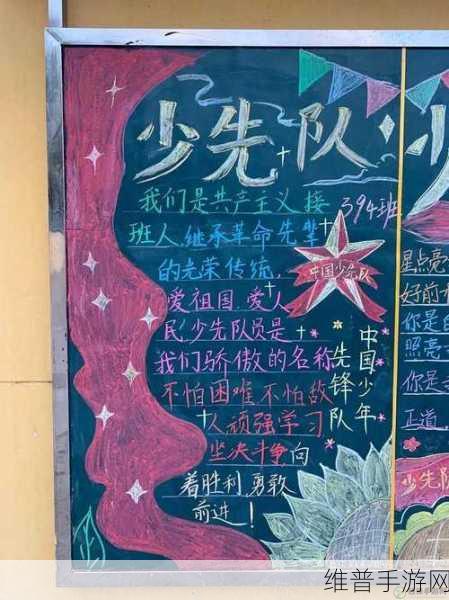 少先队
我们是共产主义接
394班
班人,继承革命先辈
的光荣传统,
中国少先队
爱祖国,爱人
民,少先队员是
我们骄傲的名称
不怕困难不怕敌
人顽强学习
坚决斗争向
着胜利,勇敢
前进!
中国少年
先锋队
少
星点亮
好前
你是
照亮
你是
正道,
少先队
维普手游网